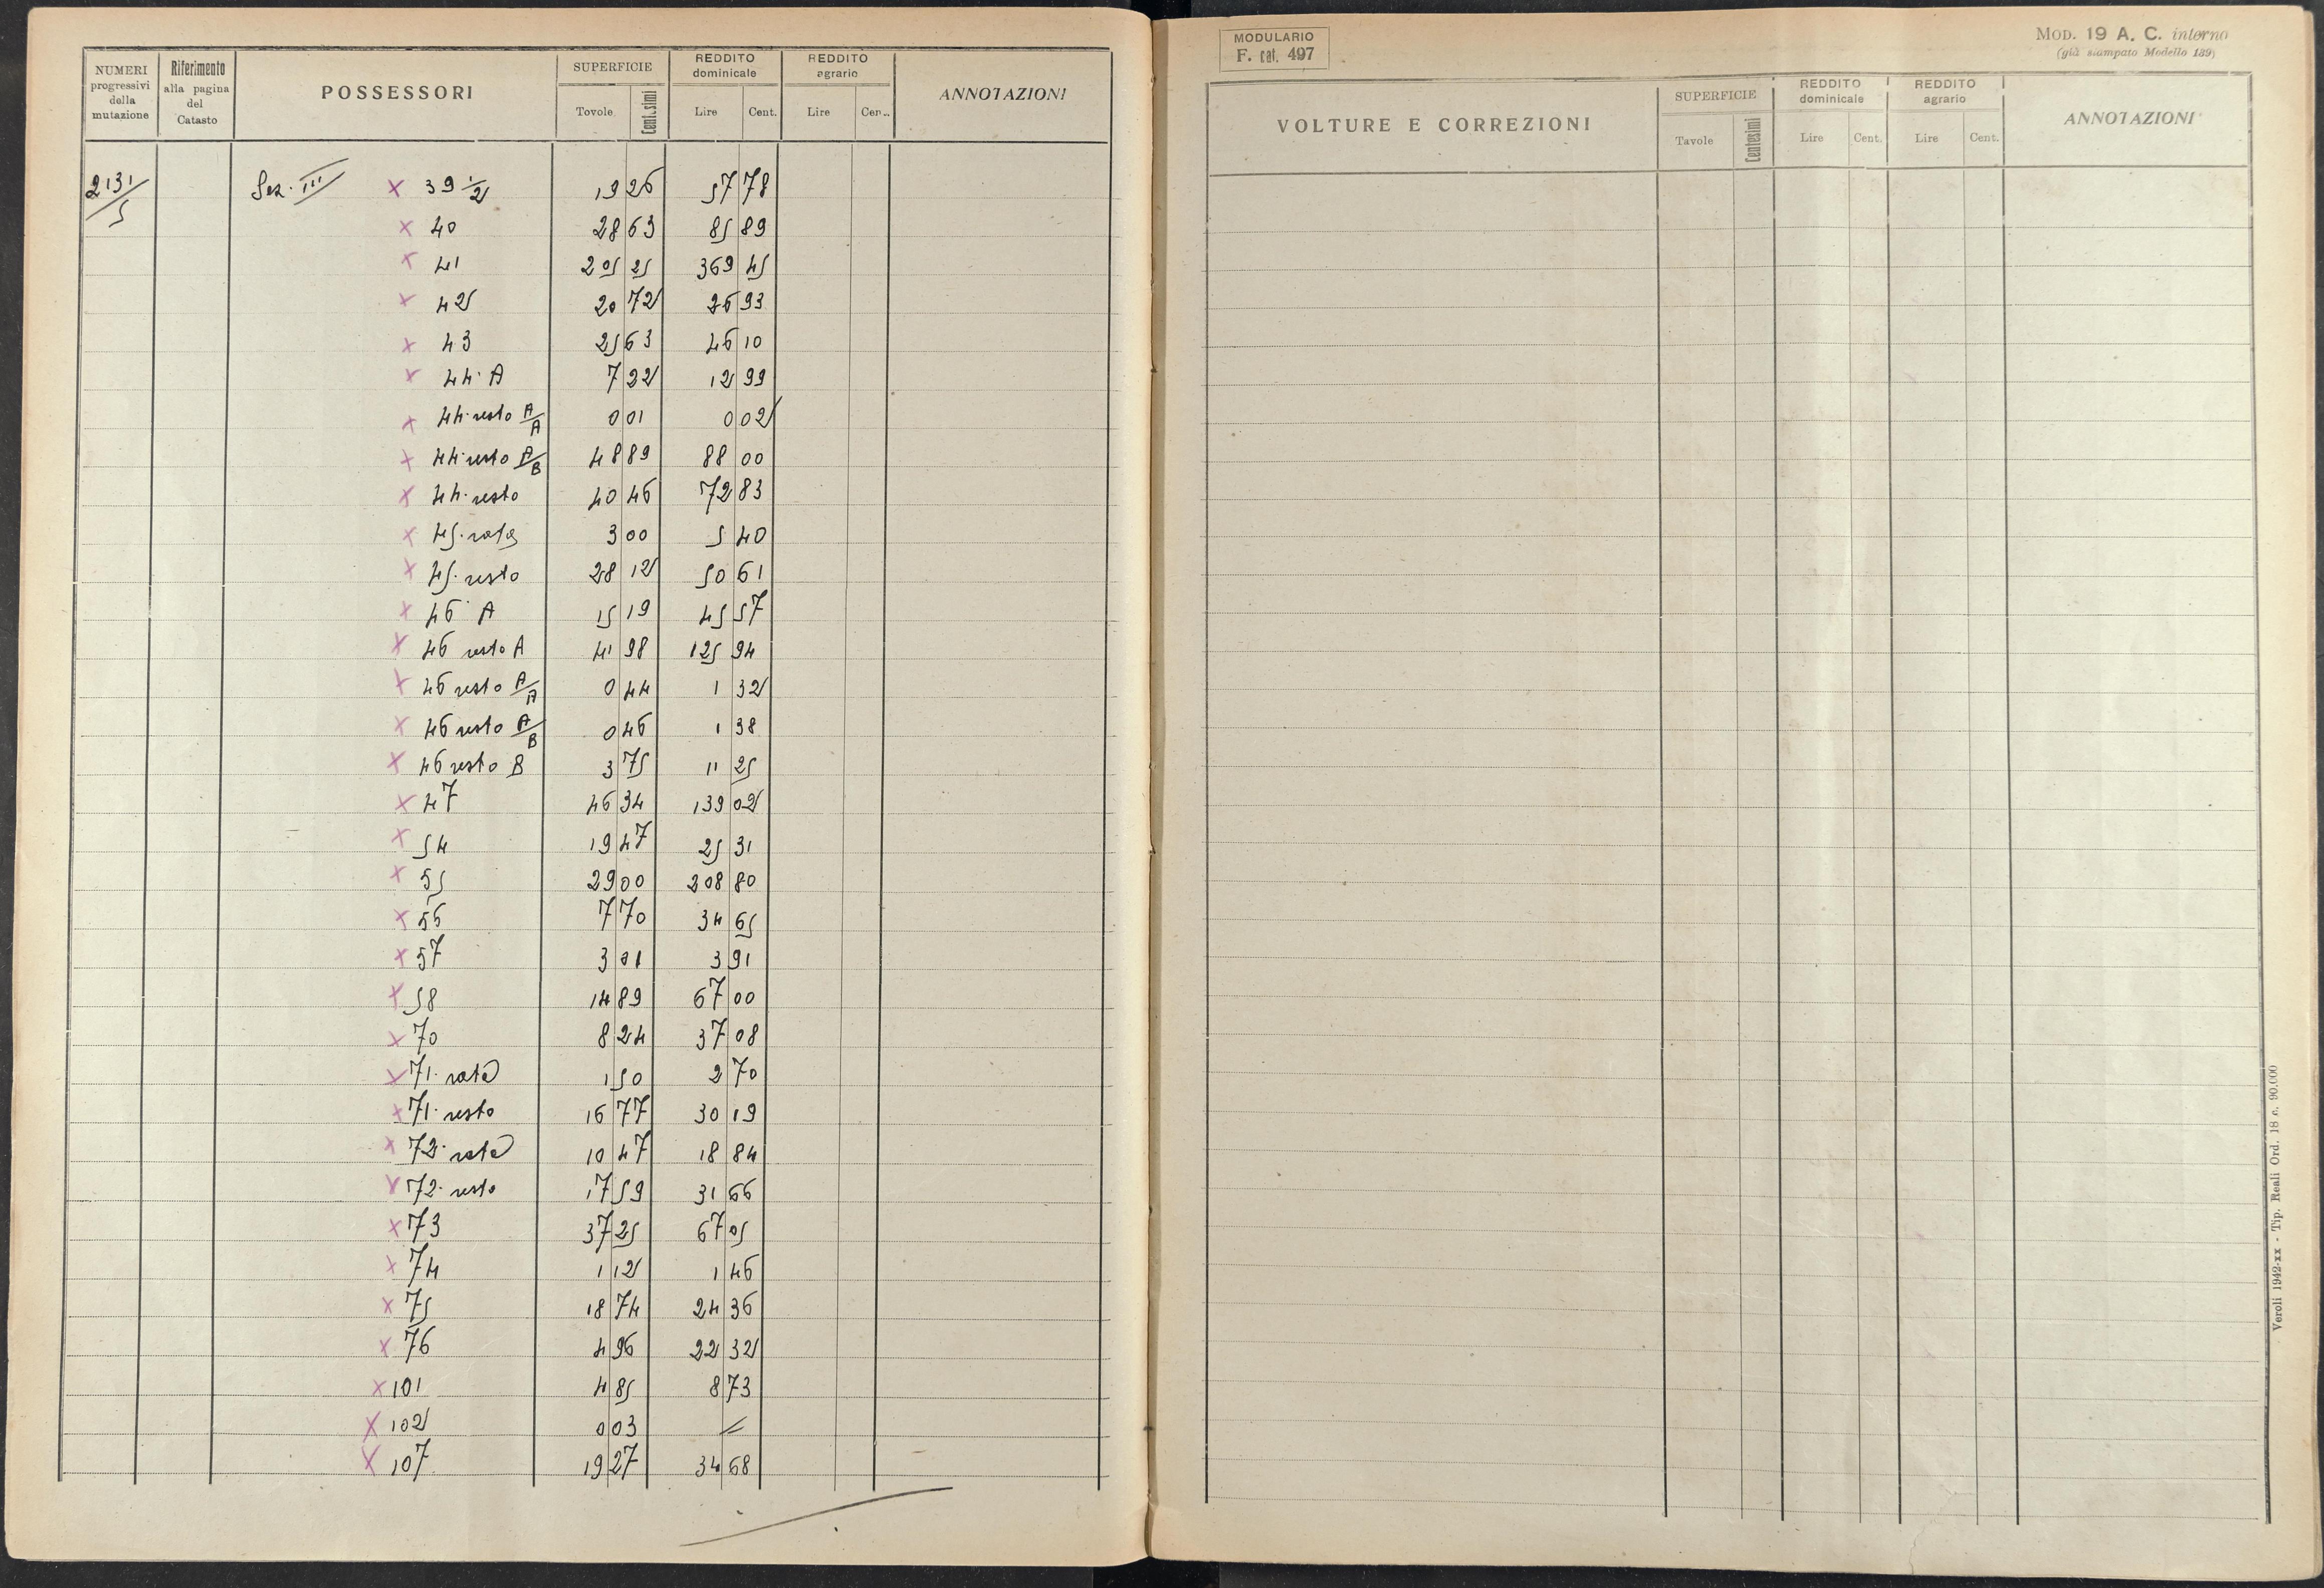 NUMERI progressivi della mutazione | Riferimento alla pagina del Catasto | POSSESSORI | SUPERFICIE Tavole Centesimi | REDDITO dominicale Lire Cent. | REDDITO agrario Lire Cen.. | ANNOTAZIONI
2131/5 Sez. III × 39 1/2 19 26 57 78
× 40 28 63 85 89
× 41 205 25 369 45
× 42 20 72 26 93
× 43 25 63 46 10
× 44 A 7 22 12 99
× 44 resto A/A 0 01 0 02
× 44 resto A/B 48 89 88 00
× 44 resto 40 46 72 83
× 45 rata 3 00 5 40
× 45 resto 28 12 50 61
× 46 A 15 19 45 57
× 46 resto A 41 98 125 94
× 46 resto A/A 0 44 1 32
× 46 resto A/B 0 46 1 38
× 46 resto B 3 75 11 25
× 47 46 34 139 02
× 54 19 47 25 31
× 55 29 00 208 80
× 56 7 70 34 65
× 57 3 01 3 91
× 58 14 89 67 00
× 70 8 24 37 08
× 71 rata 1 50 2 70
× 71 resto 16 77 30 19
× 72 rata 10 47 18 84
× 72 resto 17 59 31 66
× 73 37 25 67 05
× 74 1 12 1 46
× 75 18 74 24 36
× 76 4 96 22 32
× 101 4 85 8 73
× 102 0 03 =
× 107 19 27 34 68
MODULARIO
F. cat. 497
MOD. 19 A. C. interno
(già stampato Modello 139)
VOLTURE E CORREZIONI | SUPERFICIE Tavole Centesimi | REDDITO dominicale Lire Cent. | REDDITO agrario Lire Cent. | ANNOTAZIONI
Veroli 1942-xx - Tip. Reali Ord. 18 c. 90.000